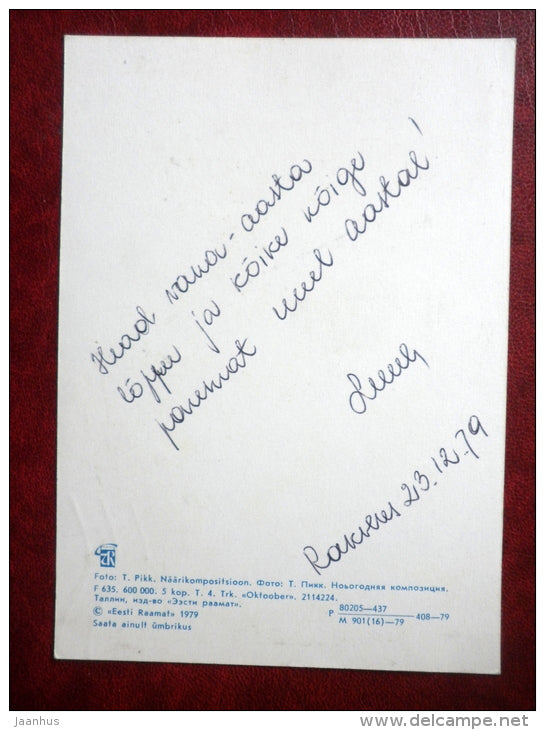 Head vana-aasta
lõppu ja kõike kõige
paremat uuel aastal!
Rakvere 23.12.79
Foto: T. Pikk. Näärikompositsioon. Фото: Т. Пикк. Новогодняя композиция.
F 635. 600 000. 5 kop. T. 4. Trk. «Oktoober». 2114224.
Таллин, изд-во «Ээсти раамат».
© «Eesti Raamat» 1979
Saata ainult ümbrikus
P 80205—437
M 901(16)—79
408—79
jaanhus
www.delcampe.net